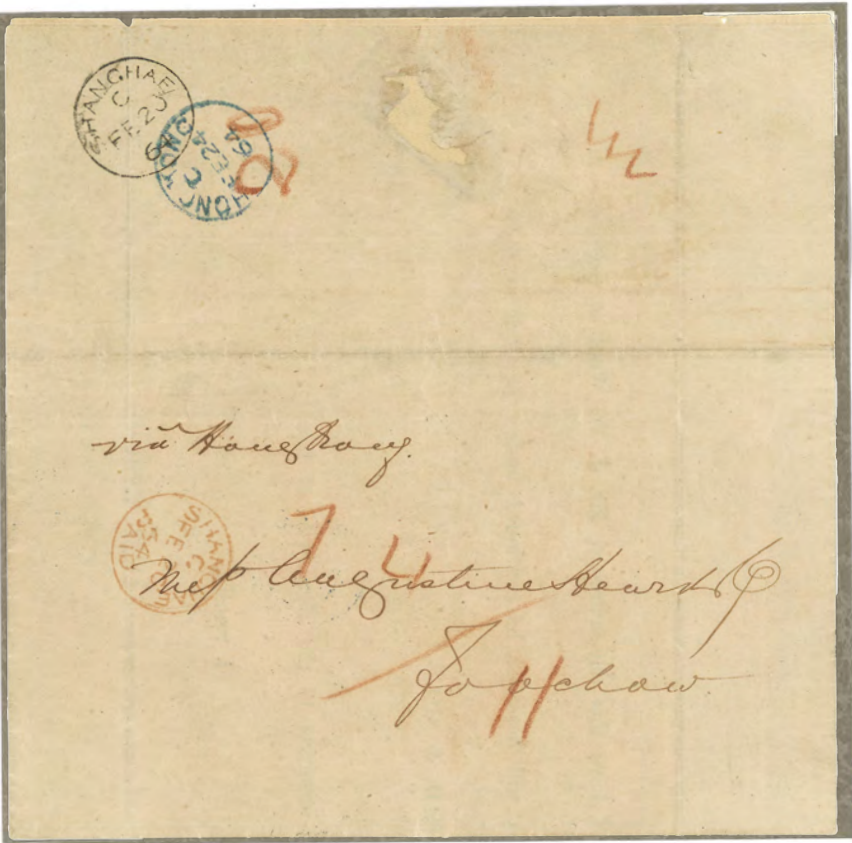 SHANGHAE
C
FE 20
64
HONG KONG
C
FE 24
64
via Hong Kong.
SHANGHAE
C
FE
PAID
7 4
Mess Augustine Heard & Co
Foochow
11